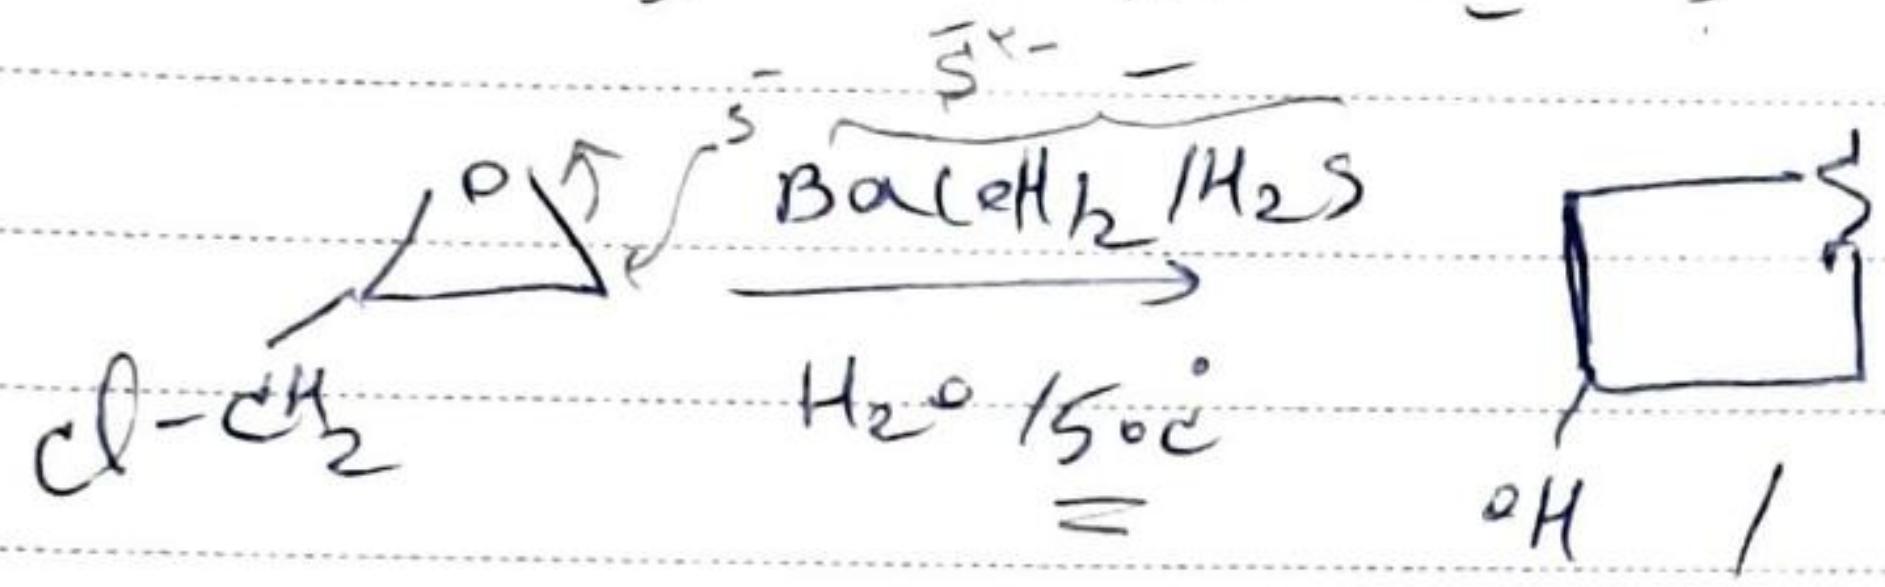 S²⁻
S⁻
O
Ba(OH)₂/H₂S
S
Cl-CH₂
H₂O/50°C
OH